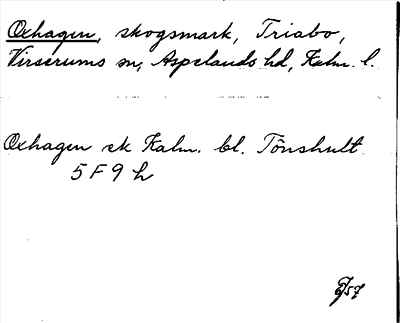 Oxhagen, skogsmark, Triabo,
Virserums sn, Aspelands hd, Kalm. l.
Oxhagen ek Kalm. bl. Tönshult
5 F 9 h